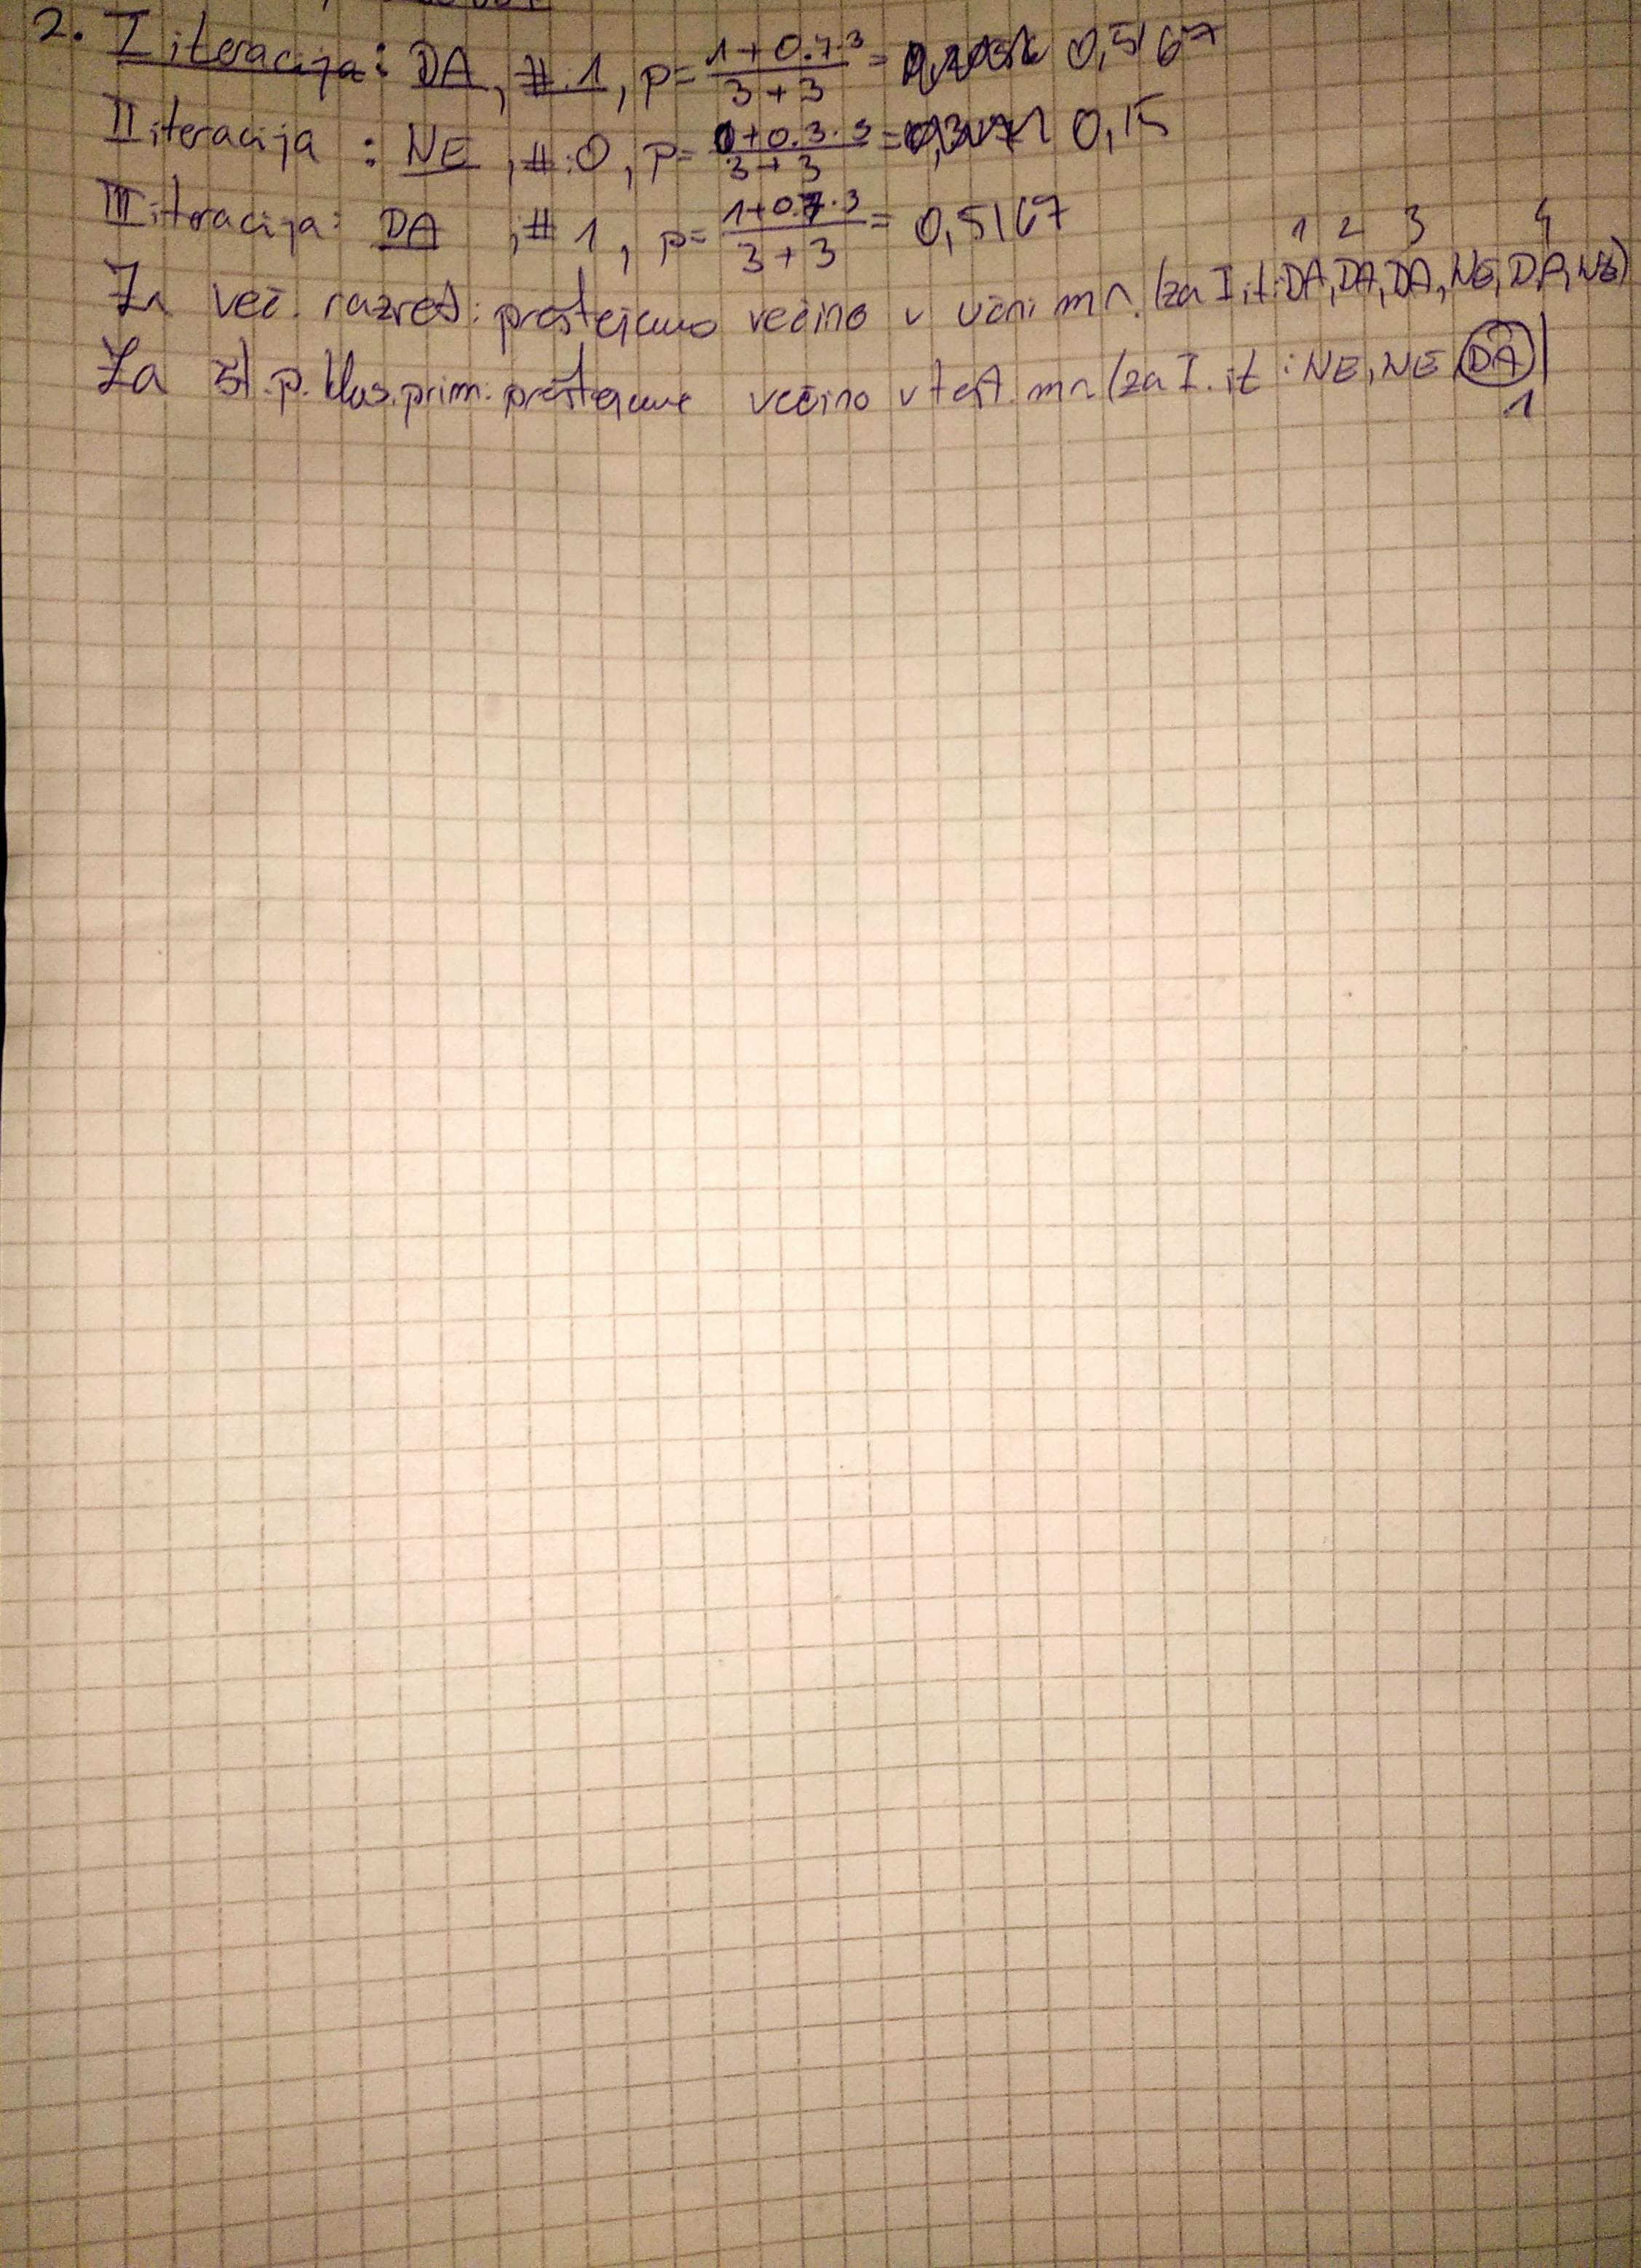 2. I iteracija: DA, #.1, p= 1+0.7.3 / 3+3 = 0,5167
II iteracija : NE, #:0, p= 0+0.3.3 / 3+3 = 0,15
III iteracija: DA ,# 1, p= 1+0.7.3 / 3+3 = 0,5167
1 2 3 4
Za več. razred: preštejemo večino v učni mn. (za I.it:DA,DA,DA,NE,DA,NE)
Za št.p.klas.prim: preštejemo večino v test. mn (za I. it : NE,NE DA)
1